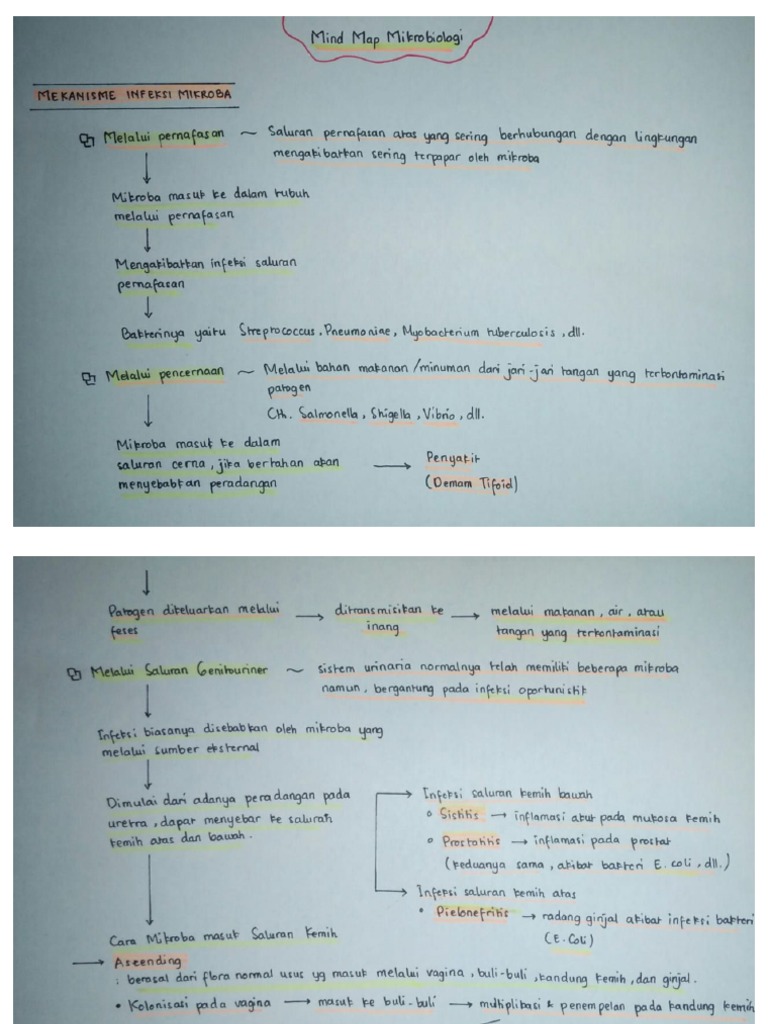 Mind Map Mikrobiologi
MEKANISME INFEKSI MIKROBA
Melalui pernafasan ~ Saluran pernafasan atas yang sering berhubungan dengan lingkungan
mengakibatkan sering terpapar oleh mikroba
Mikroba masuk ke dalam tubuh
melalui pernafasan
Mengakibatkan infeksi saluran
pernafasan
Bakterinya yaitu Streptococcus, Pneumoniae, Myobacterium tuberculosis, dll.
Melalui pencernaan ~ Melalui bahan makanan/minuman dari jari-jari tangan yang terkontaminasi
patogen
Cth. Salmonella, Shigella, Vibrio, dll.
Mikroba masuk ke dalam
saluran cerna, jika bertahan akan → Penyakit
menyebabkan peradangan (Demam Tifoid)
Patogen dikeluarkan melalui → ditransmisikan ke → melalui makanan, air, atau
feses inang tangan yang terkontaminasi
Melalui Saluran Genitouriner ~ sistem urinaria normalnya telah memiliki beberapa mikroba
namun, bergantung pada infeksi oportunistik
Infeksi biasanya disebabkan oleh mikroba yang
melalui sumber eksternal
Dimulai dari adanya peradangan pada
uretra, dapat menyebar ke saluran
kemih atas dan bawah.
→ Infeksi saluran kemih bawah
Sistitis → inflamasi akut pada mukosa kemih
Prostatitis → inflamasi pada prostat
(keduanya sama, akibat bakteri E. coli, dll.)
→ Infeksi saluran kemih atas
• Pielonefritis → radang ginjal akibat infeksi bakteri
(E. Coli)
Cara Mikroba masuk Saluran Kemih
→ Ascending
: berasal dari flora normal usus yg masuk melalui vagina, buli-buli, kandung kemih, dan ginjal.
• Kolonisasi pada vagina → masuk ke buli-buli → multiplikasi & penempelan pada kandung kemih